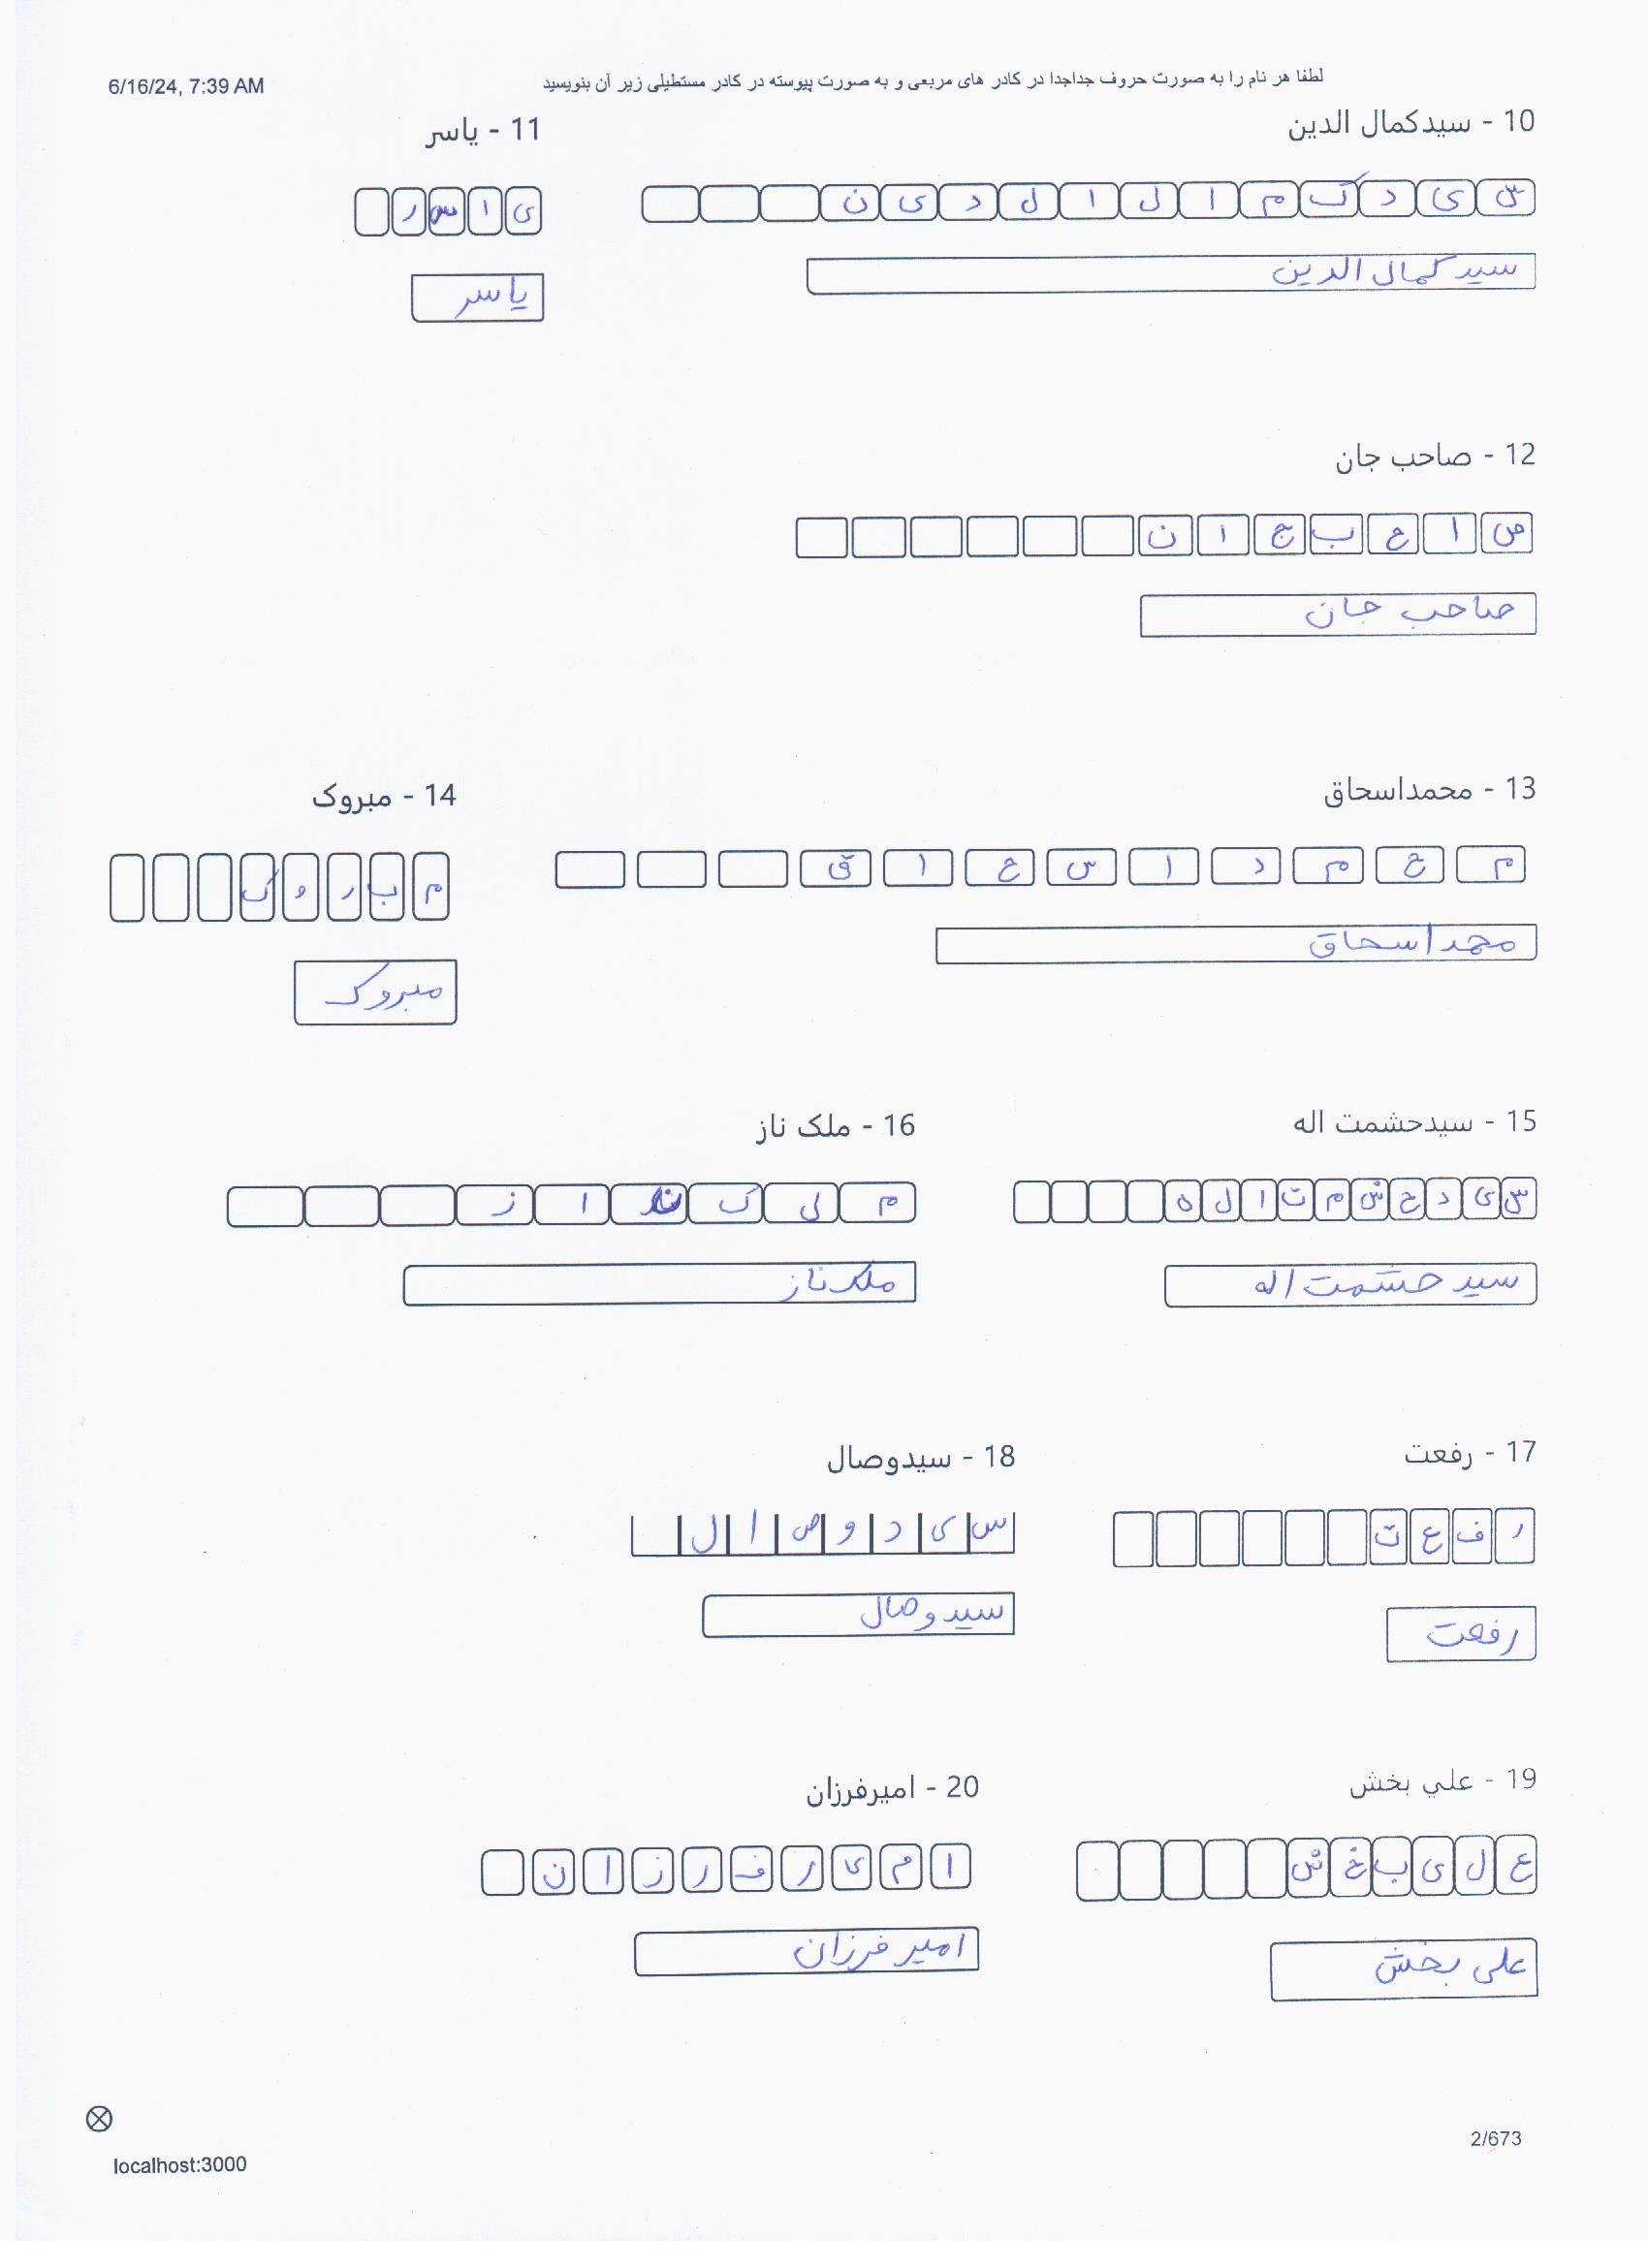 6/16/24, 7:39 AM لطفا هر نام را به صورت حروف جداجدا در کادر های مربعی و به صورت پیوسته در کادر مستطیلی زیر آن بنویسید
10 - سیدکمال الدین
س ی د ک م ا ل ا ل د ی ن
سید کمال الدین
11 - یاسر
ی ا س ر
یاسر
12 - صاحب جان
ص ا ح ب ج ا ن
صاحب جان
13 - محمداسحاق
م ح م د ا س ح ا ق
محمد اسحاق
14 - مبروک
م ب ر و ک
مبروک
15 - سیدحشمت اله
س ی د ح ش م ت ا ل ه
سید حشمت اله
16 - ملک ناز
م ل ک ن ا ز
ملک ناز
17 - رفعت
ر ف ع ت
رفعت
18 - سیدوصال
س ی د و ص ا ل
سید وصال
19 - علي بخش
ع ل ی ب خ ش
علی بخش
20 - امیرفرزان
ا م ی ر ف ر ز ا ن
امیر فرزان
2/673
localhost:3000